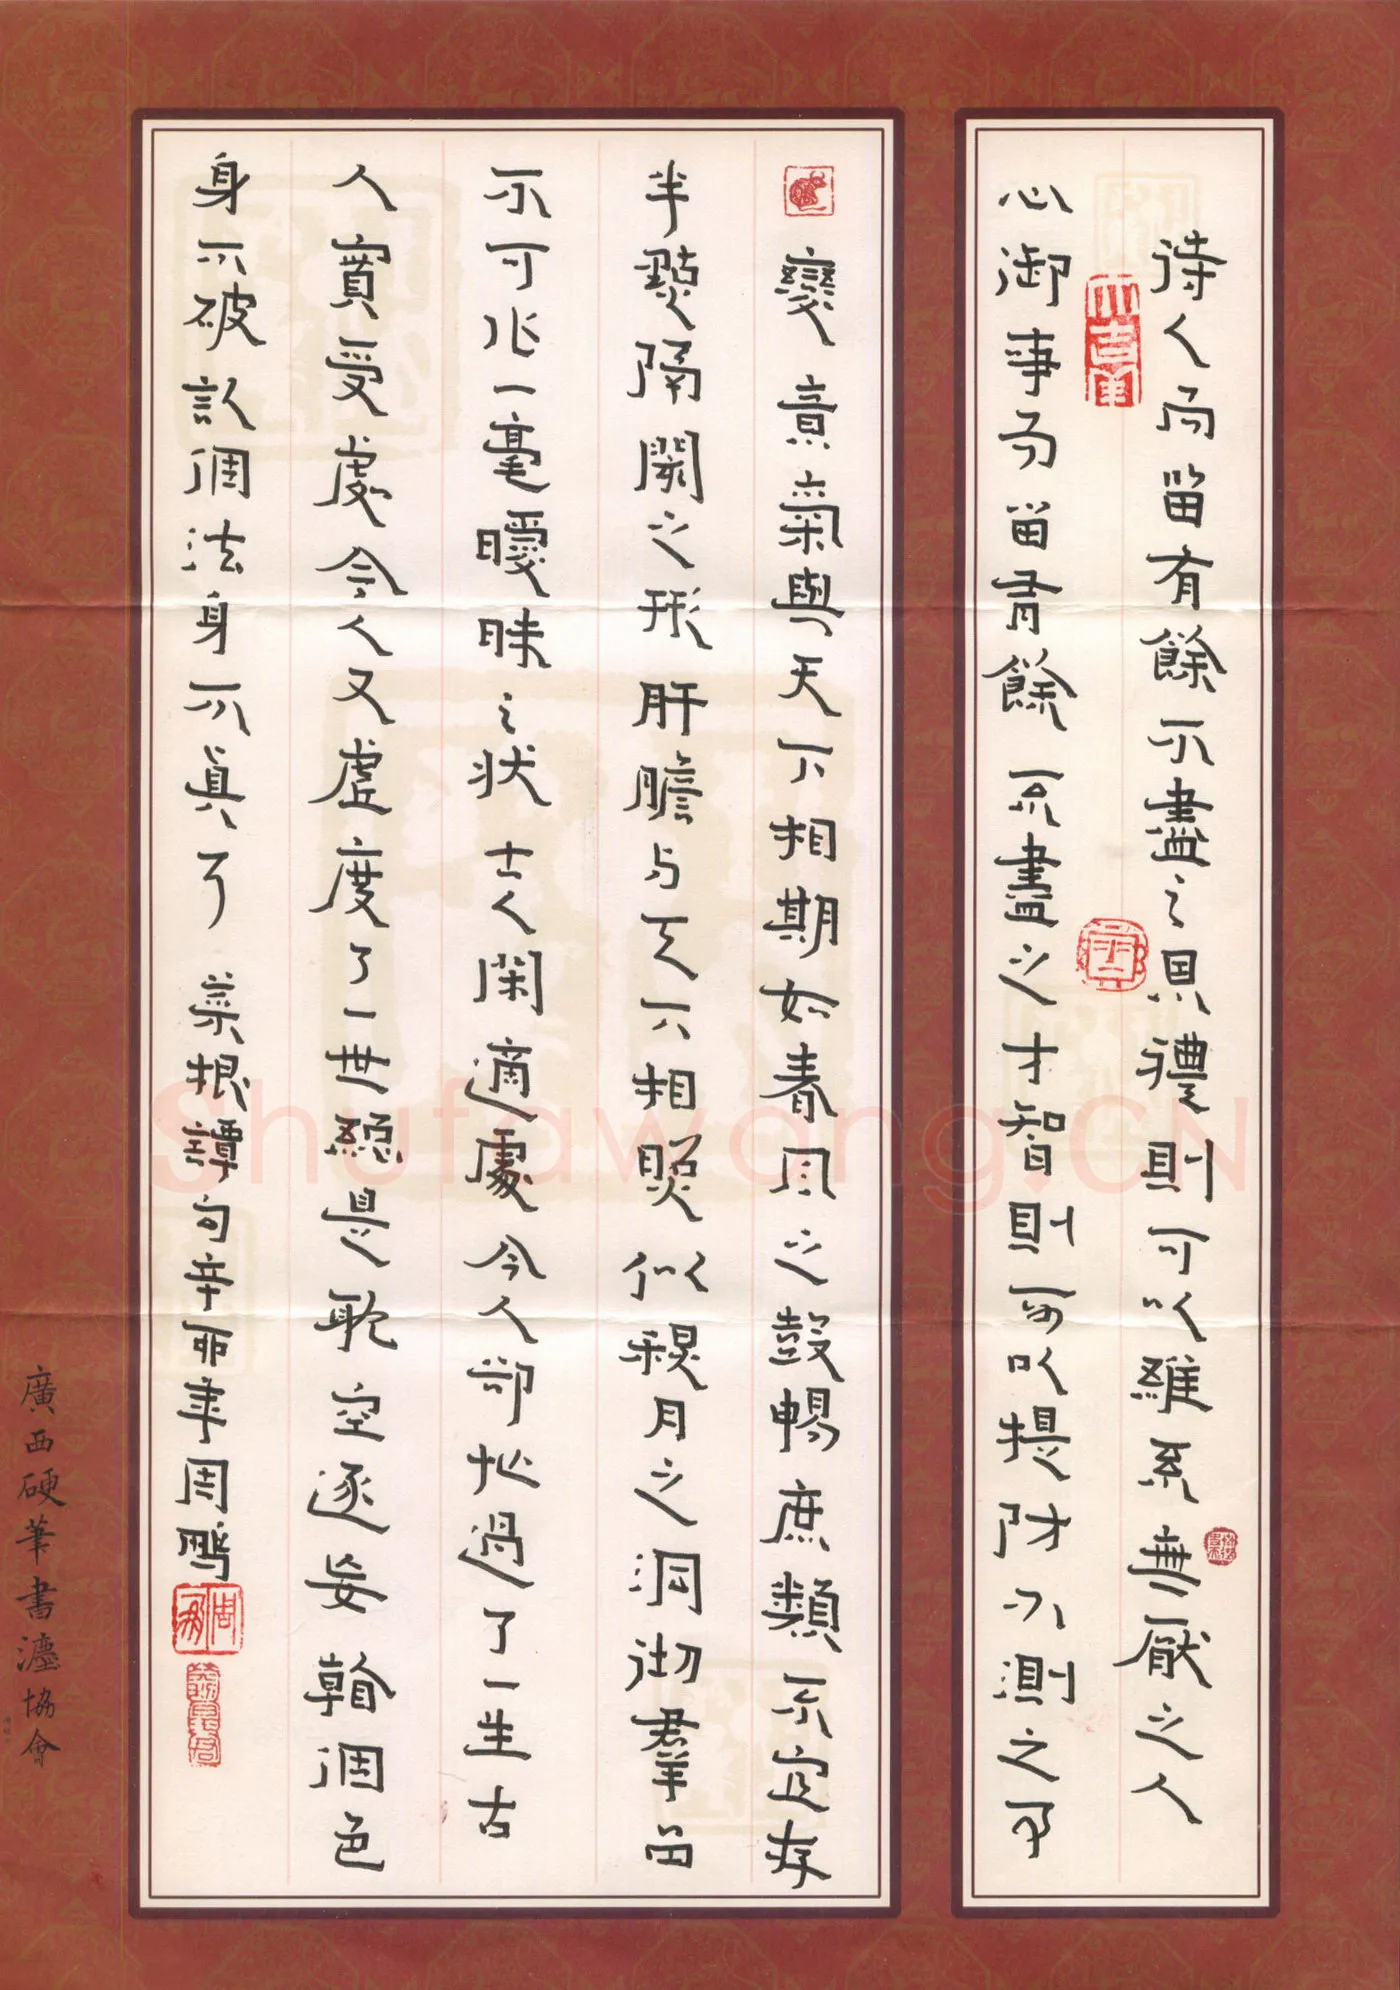 待人而留有餘不盡之恩禮則可以維系無厭之人
心御事而留有餘不盡之才智則可以提防不測之事
變 意氣與天下相期如春風之鼓暢庶類不宜存
半點隔閡之形肝膽与天下相照似秋月之洞彻羣品
不可作一毫曖昧之状 士人閑適處今人却忙過了一生古
人實受處今人又虛度了一世總是耽空逐妄 看個色
身不破認個法身不真了 菜根譚句辛卯年周鵬
廣西硬筆書灋協會
Shufawang.CN